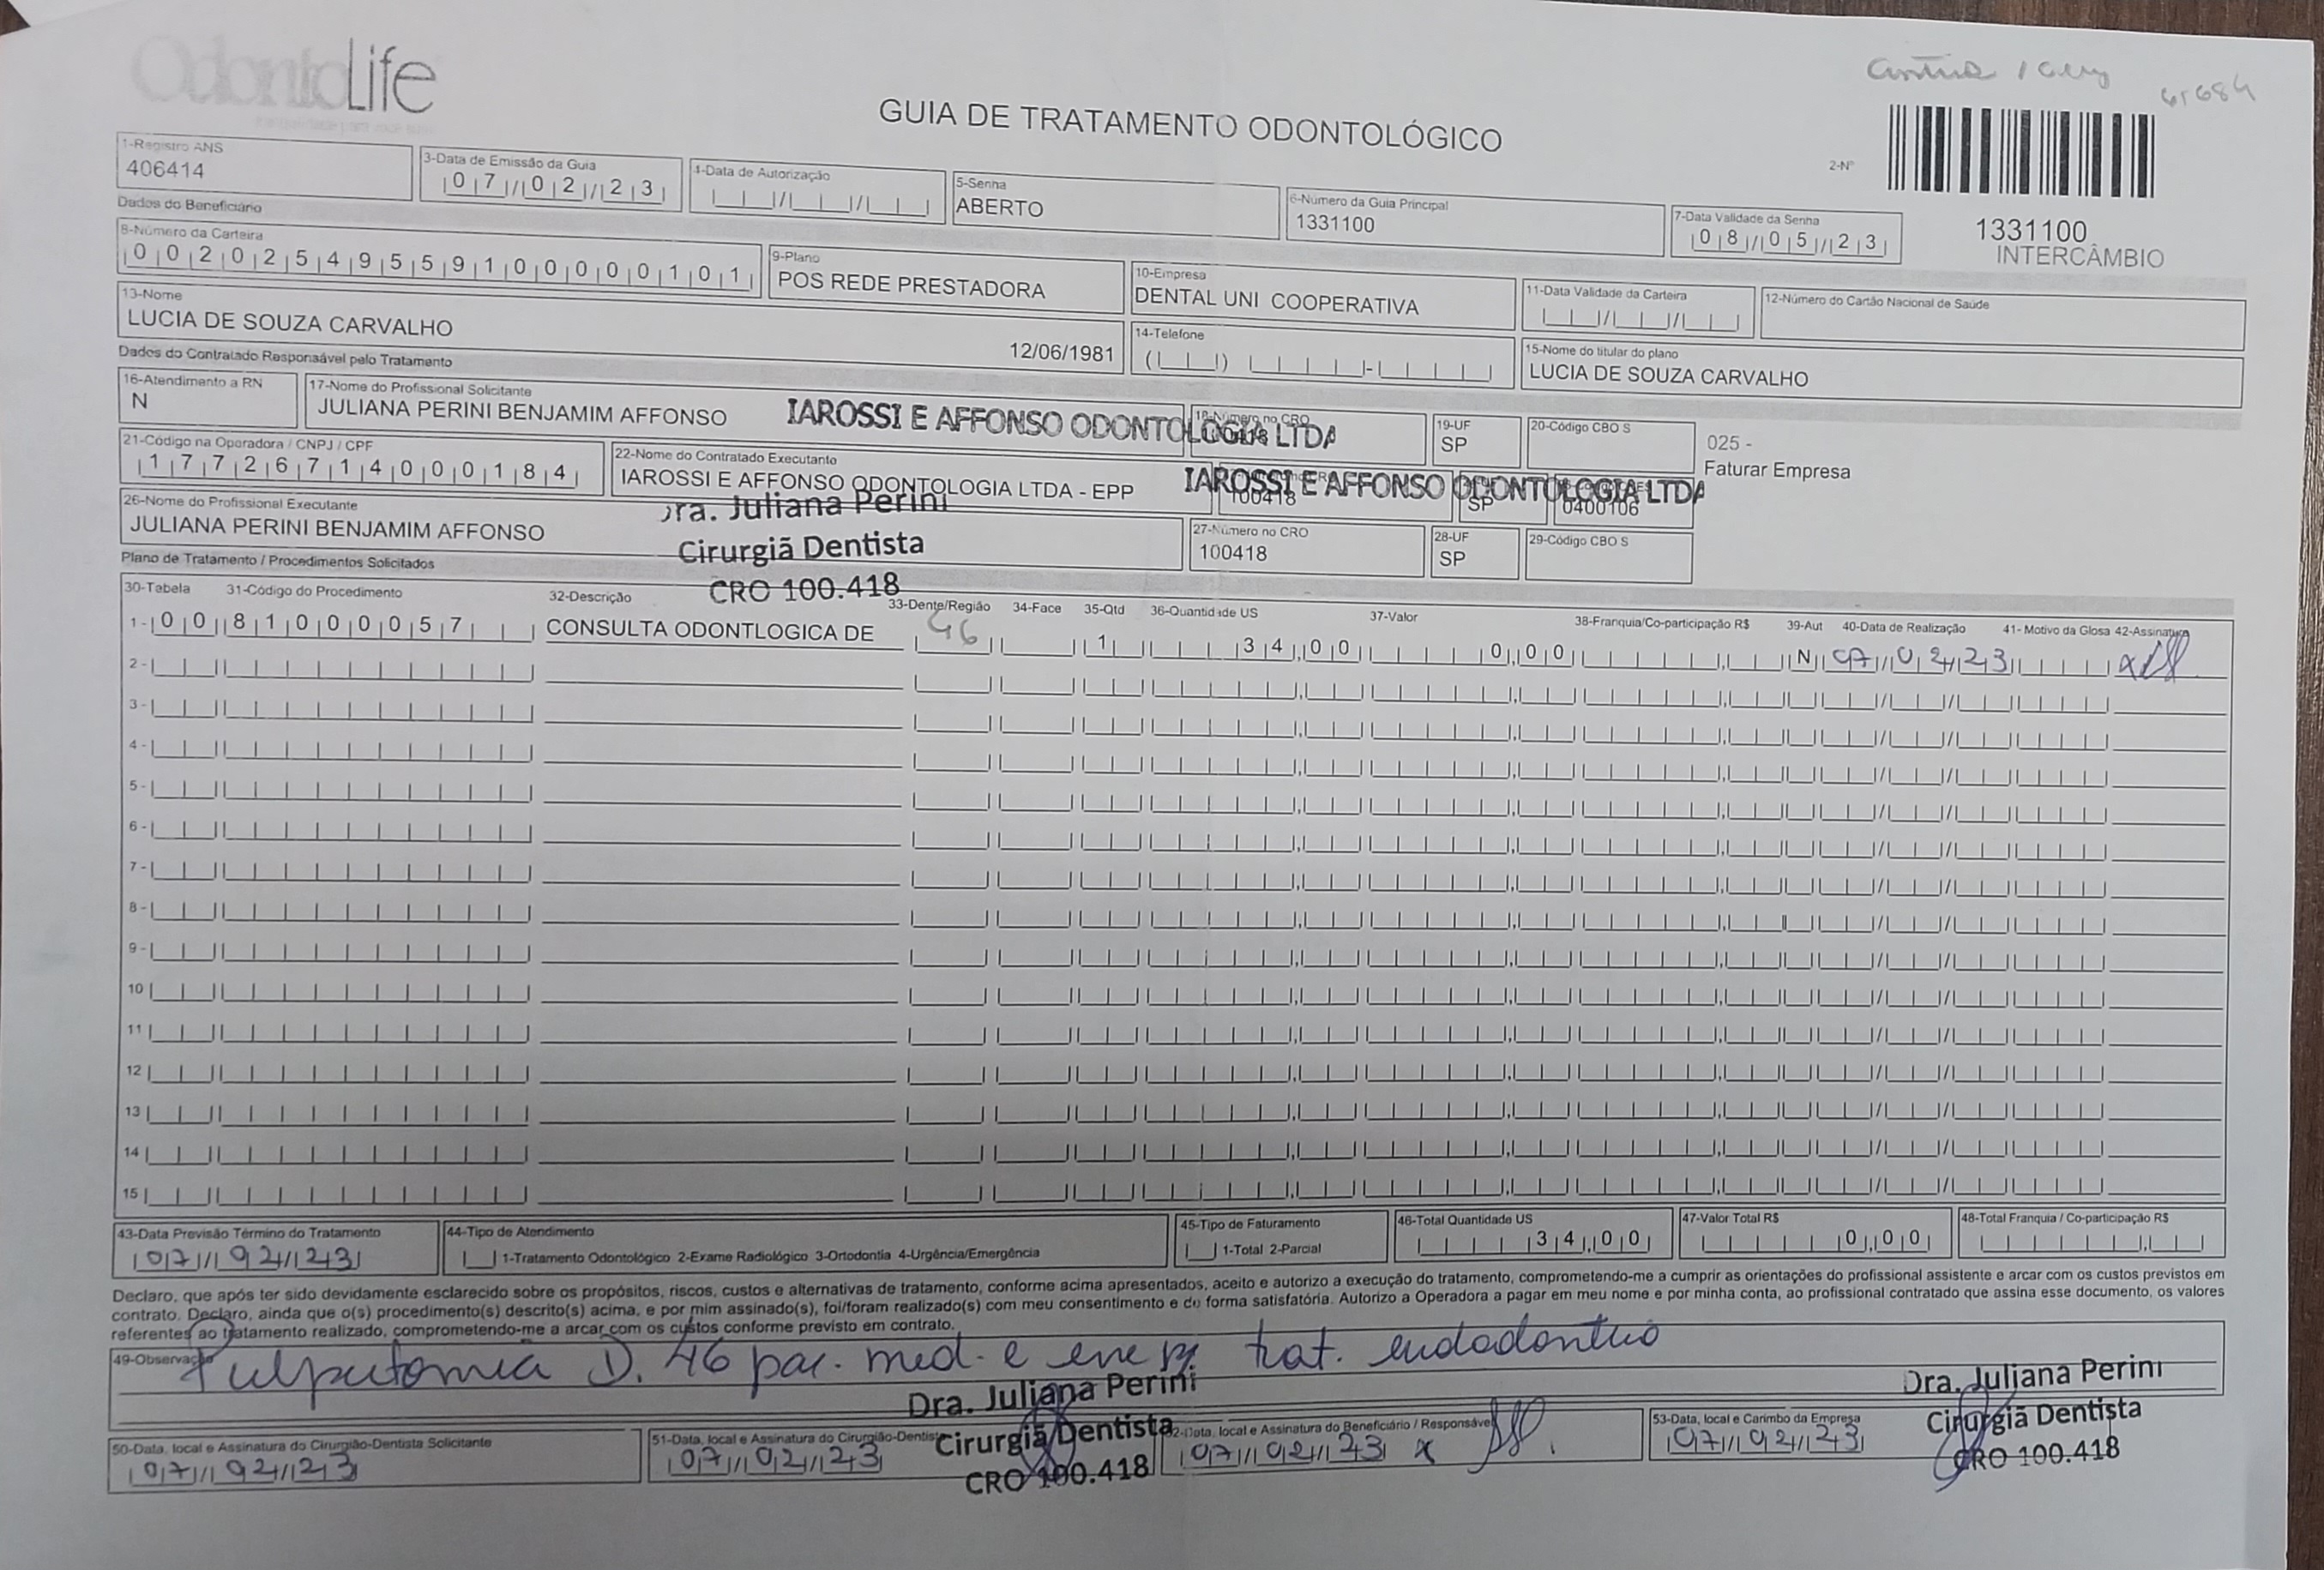 OdontoLife
GUIA DE TRATAMENTO ODONTOLÓGICO
61684
2-Nº
1331100
INTERCÂMBIO
1-Registro ANS
406414
3-Data de Emissão da Guia
07/02/23
4-Data de Autorização
5-Senha
ABERTO
6-Número da Guia Principal
1331100
7-Data Validade da Senha
08/05/23
Dados do Beneficiário
8-Número da Carteira
00202549559100000101
9-Plano
POS REDE PRESTADORA
10-Empresa
DENTAL UNI COOPERATIVA
11-Data Validade da Carteira
12-Número do Cartão Nacional de Saúde
13-Nome
LUCIA DE SOUZA CARVALHO
12/06/1981
14-Telefone
15-Nome do titular do plano
LUCIA DE SOUZA CARVALHO
Dados do Contratado Responsável pelo Tratamento
16-Atendimento a RN
N
17-Nome do Profissional Solicitante
JULIANA PERINI BENJAMIM AFFONSO
IAROSSI E AFFONSO ODONTOLOGIA LTDA
18-Número no CRO
19-UF
SP
20-Código CBO S
025 -
Faturar Empresa
21-Código na Operadora / CNPJ / CPF
17726714000184
22-Nome do Contratado Executante
IAROSSI E AFFONSO ODONTOLOGIA LTDA - EPP
IAROSSI E AFFONSO ODONTOLOGIA LTDA
100418
SP
0400106
26-Nome do Profissional Executante
JULIANA PERINI BENJAMIM AFFONSO
Dra. Juliana Perini
Cirurgiã Dentista
CRO 100.418
27-Número no CRO
100418
28-UF
SP
29-Código CBO S
Plano de Tratamento / Procedimentos Solicitados
30-Tabela 31-Código do Procedimento 32-Descrição 33-Dente/Região 34-Face 35-Qtd 36-Quantidade US 37-Valor 38-Franquia/Co-participação R$ 39-Aut 40-Data de Realização 41- Motivo da Glosa 42-Assinatura
1- 00 81000057 CONSULTA ODONTLOGICA DE 46 1 34,00 0,00 N 07/02/23
2-
3-
4-
5-
6-
7-
8-
9-
10
11
12
13
14
15
43-Data Previsão Término do Tratamento
07/02/23
44-Tipo de Atendimento
1-Tratamento Odontológico 2-Exame Radiológico 3-Ortodontia 4-Urgência/Emergência
45-Tipo de Faturamento
1-Total 2-Parcial
46-Total Quantidade US
34,00
47-Valor Total R$
0,00
48-Total Franquia / Co-participação R$
Declaro, que após ter sido devidamente esclarecido sobre os propósitos, riscos, custos e alternativas de tratamento, conforme acima apresentados, aceito e autorizo a execução do tratamento, comprometendo-me a cumprir as orientações do profissional assistente e arcar com os custos previstos em
contrato. Declaro, ainda que o(s) procedimento(s) descrito(s) acima, e por mim assinado(s), foi/foram realizado(s) com meu consentimento e de forma satisfatória. Autorizo a Operadora a pagar em meu nome e por minha conta, ao profissional contratado que assina esse documento, os valores
referentes ao tratamento realizado, comprometendo-me a arcar com os custos conforme previsto em contrato.
49-Observação
Pulpotomia D. 46 pac. med. e trat. endodontico
50-Data, local e Assinatura do Cirurgião-Dentista Solicitante
07/02/23
51-Data, local e Assinatura do Cirurgião-Dentista
07/02/23
Dra. Juliana Perini
Cirurgiã Dentista
CRO 100.418
52-Data, local e Assinatura do Beneficiário / Responsável
07/02/23 x
53-Data, local e Carimbo da Empresa
07/02/23
Dra. Juliana Perini
Cirurgiã Dentista
CRO 100.418